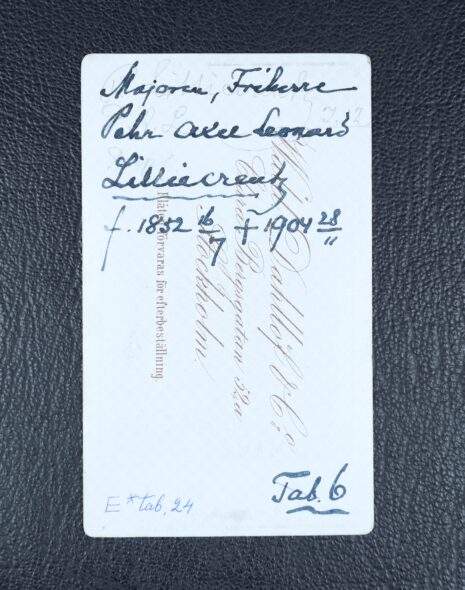 Majoren, Friherre
Pehr Axel Leonard
Lilliecreutz
f. 1832 16/7 † 1904 28/11
Dahllöf & Co
Clara Bergsgatan 52a
Stockholm.
förvaras för efterbeställning
Tab. 6
E * tab, 24